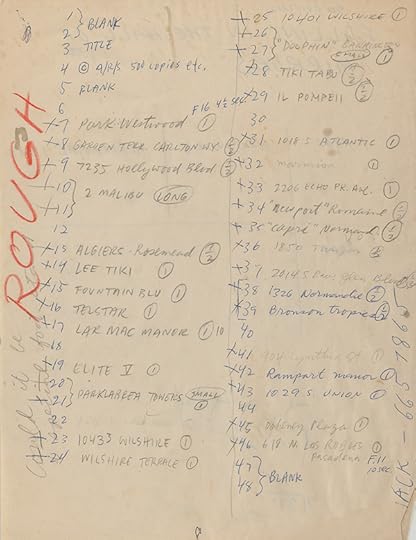 1 } BLANK
2
3 TITLE
4 © A/R/S 500 copies etc.
5 BLANK
6
F16 4½ sec
+7 Park-Westwood (1)
+8 GARDEN TERR. CARLTON WY. (1/2)
+9 7235 Hollywood Blvd (1/2)
+10 } 2 MALIBU (LONG)
+11
12
+13 ALGIERS - Rosemead (1/2)
+14 LEE TIKI (1)
+15 FOUNTAIN BLU (1)
+16 TELSTAR (1)
+17 LAR MAC MANOR (1) 10
18
+19 ELITE V (1)
+20 } PARKLABREA TOWERS (SMALL)
+21 (1)
22
+23 10433 WILSHIRE (1)
+24 WILSHIRE TERRACE (1)
+25 10401 WILSHIRE (1)
+26 } "DOLPHIN" (SMALL) (1)
+27
+28 TIKI TABU (1/2)
+29 IL POMPEII (1/2)
30
+31 1018 S ATLANTIC (1)
+32 (1)
+33 2206 ECHO PK. AVE. (1)
+34 "Newport" Romaine (1/2)
+35 "Capri" Normandie (1/2)
+36 1850 (1/2)
+37 2014 S
+38 1326 Normandie (1/2)
+39 Bronson tropics (1/2)
40
+41 904 Cynthia St. (1)
+42 Rampart manor (1)
+43 1029 S. UNION (1)
44
+45 Doheny Plaza (1)
+46 618 N. LOS ROBLES (1)
Pasadena F.11
10 SEC
47 } BLANK
48
ROUGH
could it be